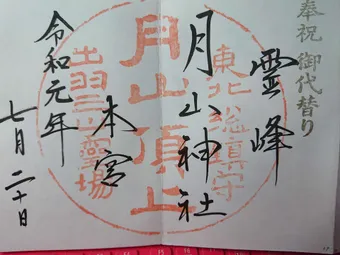 奉祝 御代替り
霊峰
東北総鎮守
月山神社
月山頂上
本宮
出羽三山霊場
令和元年
七月二十日